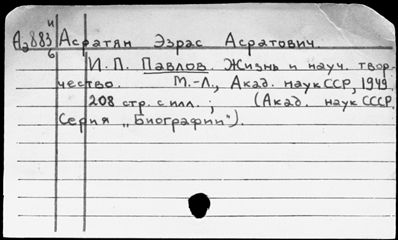 и
Аа883 Асратян Эзрас Асратович.
б
И. П. Павлов. Жизнь и науч. твор-
чество. М.-Л., Акад. наук ССР, 1949.
208 стр. с илл.; (Акад. наук СССР.
Серия „Биографии").